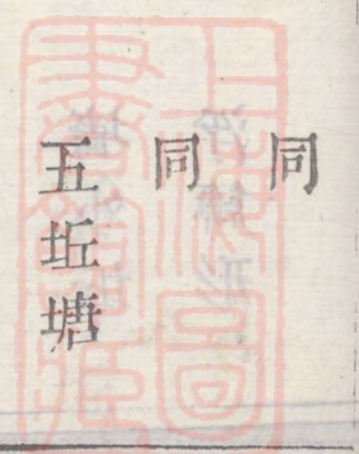 同
同
五坵塘